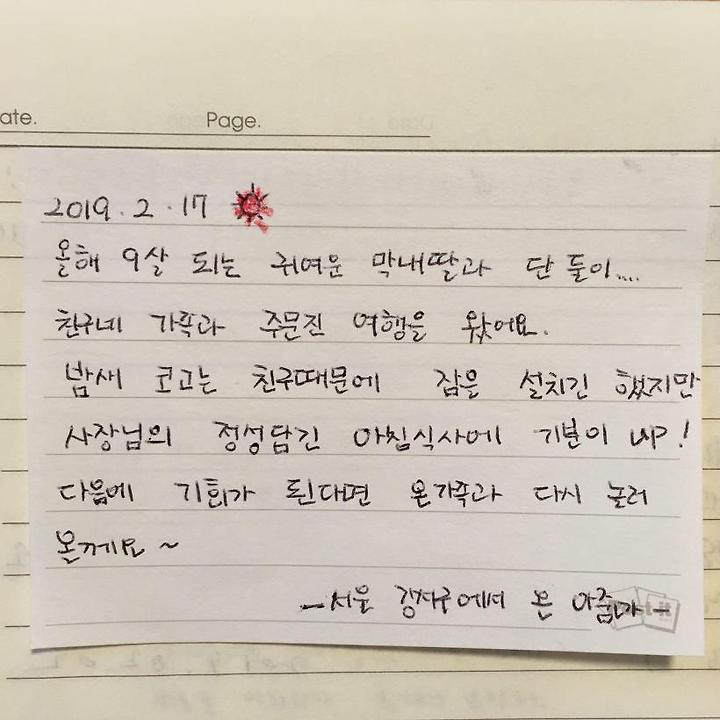 ate.
Page.
2019.2.17
올해 9살 되는 귀여운 막내딸과 단 둘이....
친구네 가족과 주문진 여행을 왔어요.
밤새 코고는 친구때문에 잠을 설치긴 했지만
사장님의 정성담긴 아침식사에 기분이 UP!
다음에 기회가 된다면 온가족과 다시 놀러
올께요~
-서울 에서 온 아줌마-